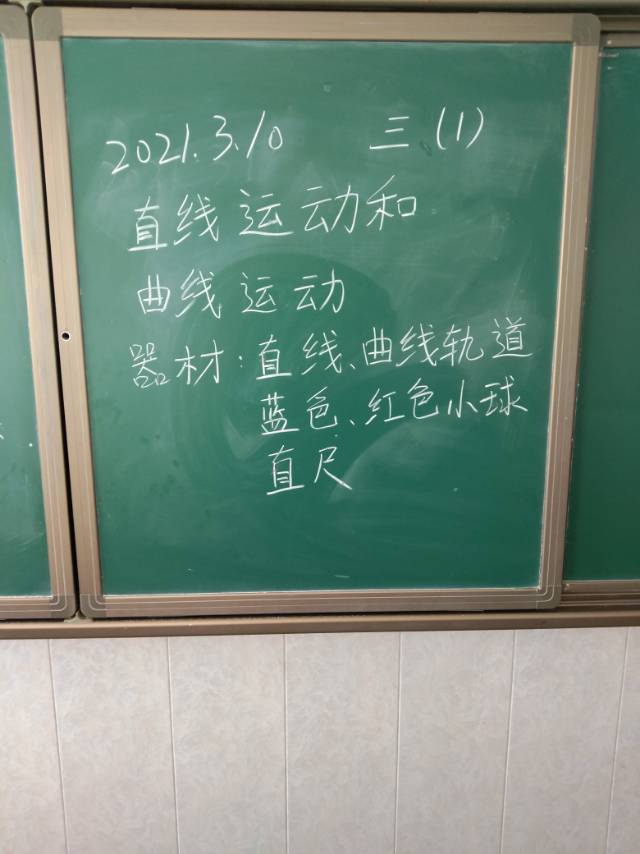 2021.3.10 三(1)
直线运动和
曲线运动
器材:直线、曲线轨道
蓝色、红色小球
直尺